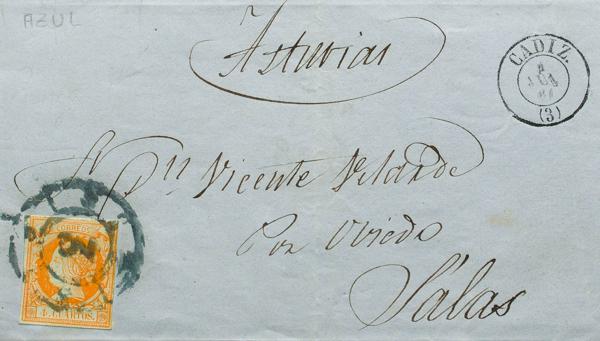 AZUL
Asturias
CADIZ.
(3)
Vicente Velarde
Por Oviedo
Sálas
CORREOS
4 CUARTOS.